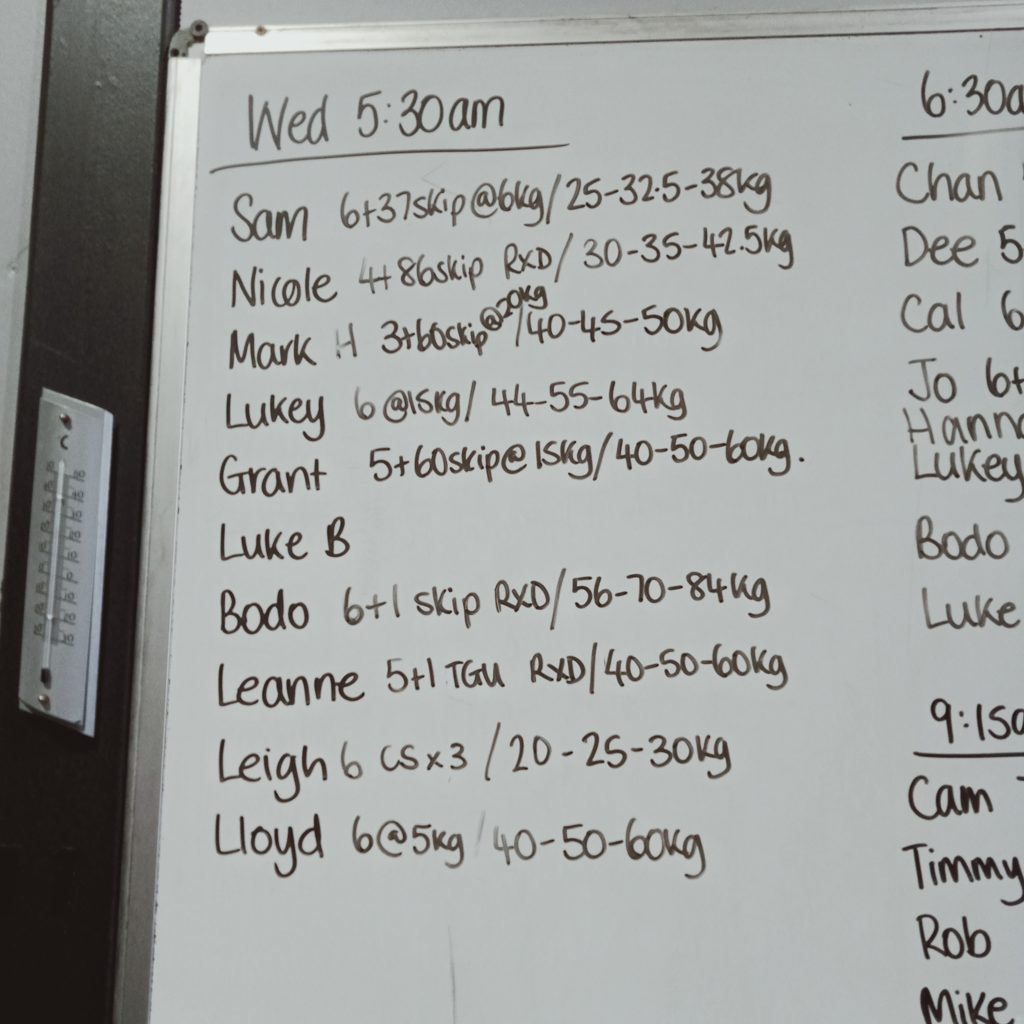 Wed 5:30am
Sam 6+37skip@6kg/25-32.5-38kg
Nicole 4+86skip RXD/30-35-42.5kg
Mark H 3+60skip@20kg/40-45-50kg
Lukey 6@15kg/44-55-64kg
Grant 5+60skip@15kg/40-50-60kg.
Luke B
Bodo 6+1 skip RXD/56-70-84kg
Leanne 5+1 TGU RXD/40-50-60kg
Leigh 6 CSx3/20-25-30kg
Lloyd 6@5kg/40-50-60kg
6:30a
Chan
Dee 5
Cal 6
Jo 6+
Hann
Lukey
Bodo
Luke
9:15a
Cam
Timmy
Rob
Mike